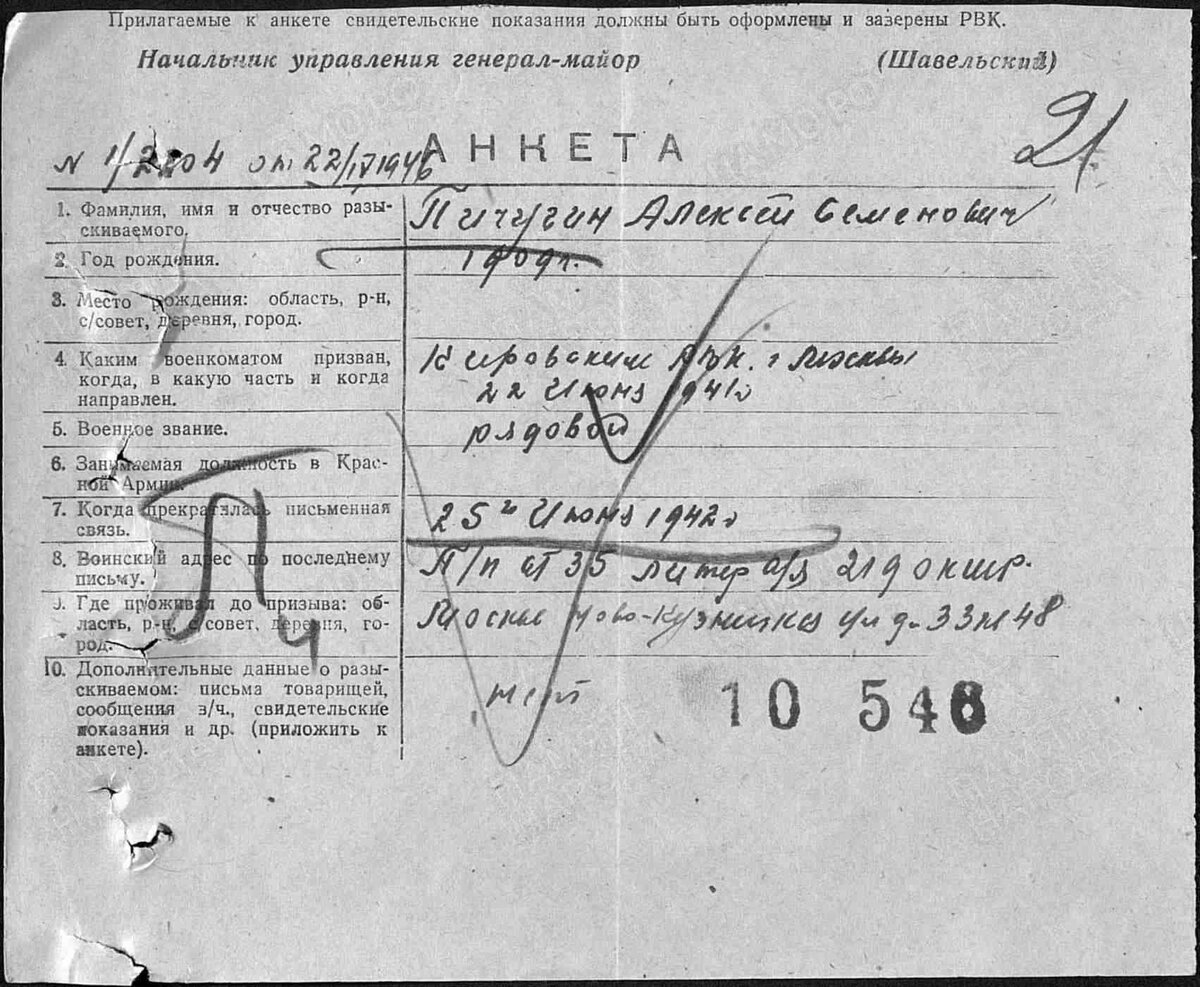 Прилагаемые к анкете свидетельские показания должны быть оформлены и заверены РВК.
Начальник управления генерал-майор (Шавельский)
21
АНКЕТА
N 1/2204 от 22/IV 1946
1. Фамилия, имя и отчество разы-
скиваемого.
Пичугин Алексей Семенович
2. Год рождения.
1909г.
3. Место рождения: область, р-н,
с/совет, деревня, город.
4. Каким военкоматом призван,
когда, в какую часть и когда
направлен.
Кировским РВК. г Москвы
22 Июня 1941г
5. Военное звание.
рядовой
6. Занимаемая должность в Крас-
ной Армии.
7. Когда прекратилась письменная
связь.
25го Июня 1942г
8. Воинский адрес по последнему
письму.
П/п ст 35 литер
9. Где проживал до призыва: об-
ласть, р-н, с/совет, деревня, го-
род.
Москва Ново-Кузнецкая ул д. 33 кв 48
10. Дополнительные данные о разы-
скиваемом: письма товарищей,
сообщения в/ч., свидетельские
показания и др. (приложить к
анкете).
нет
10 546